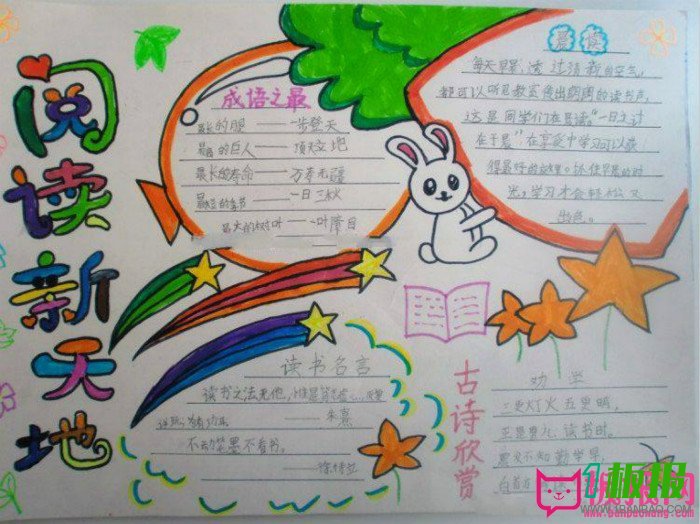 阅读新天地
成语之最
最长的腿——一步登天
最高的巨人——顶天立地
最长的寿命——万寿无疆
最短的季节——一日三秋
最大的树叶——一叶障目
晨读
每天早晨,透过清新的空气,
都可以听见教室传出朗朗的读书声,
这是同学们在晨读。"一日之计
在于晨"在享受中学习可以获
得最好的效果。抓住早晨的时
光,学习才会轻松又
出色。
读书名言
读书之法无他,惟是
朱熹
不动笔墨不看书。
徐特立
古诗欣赏
劝学
三更灯火五更鸡,
正是男儿读书时。
黑发不知勤学早,
白首
板报网
WWW.1BANBAO.COM